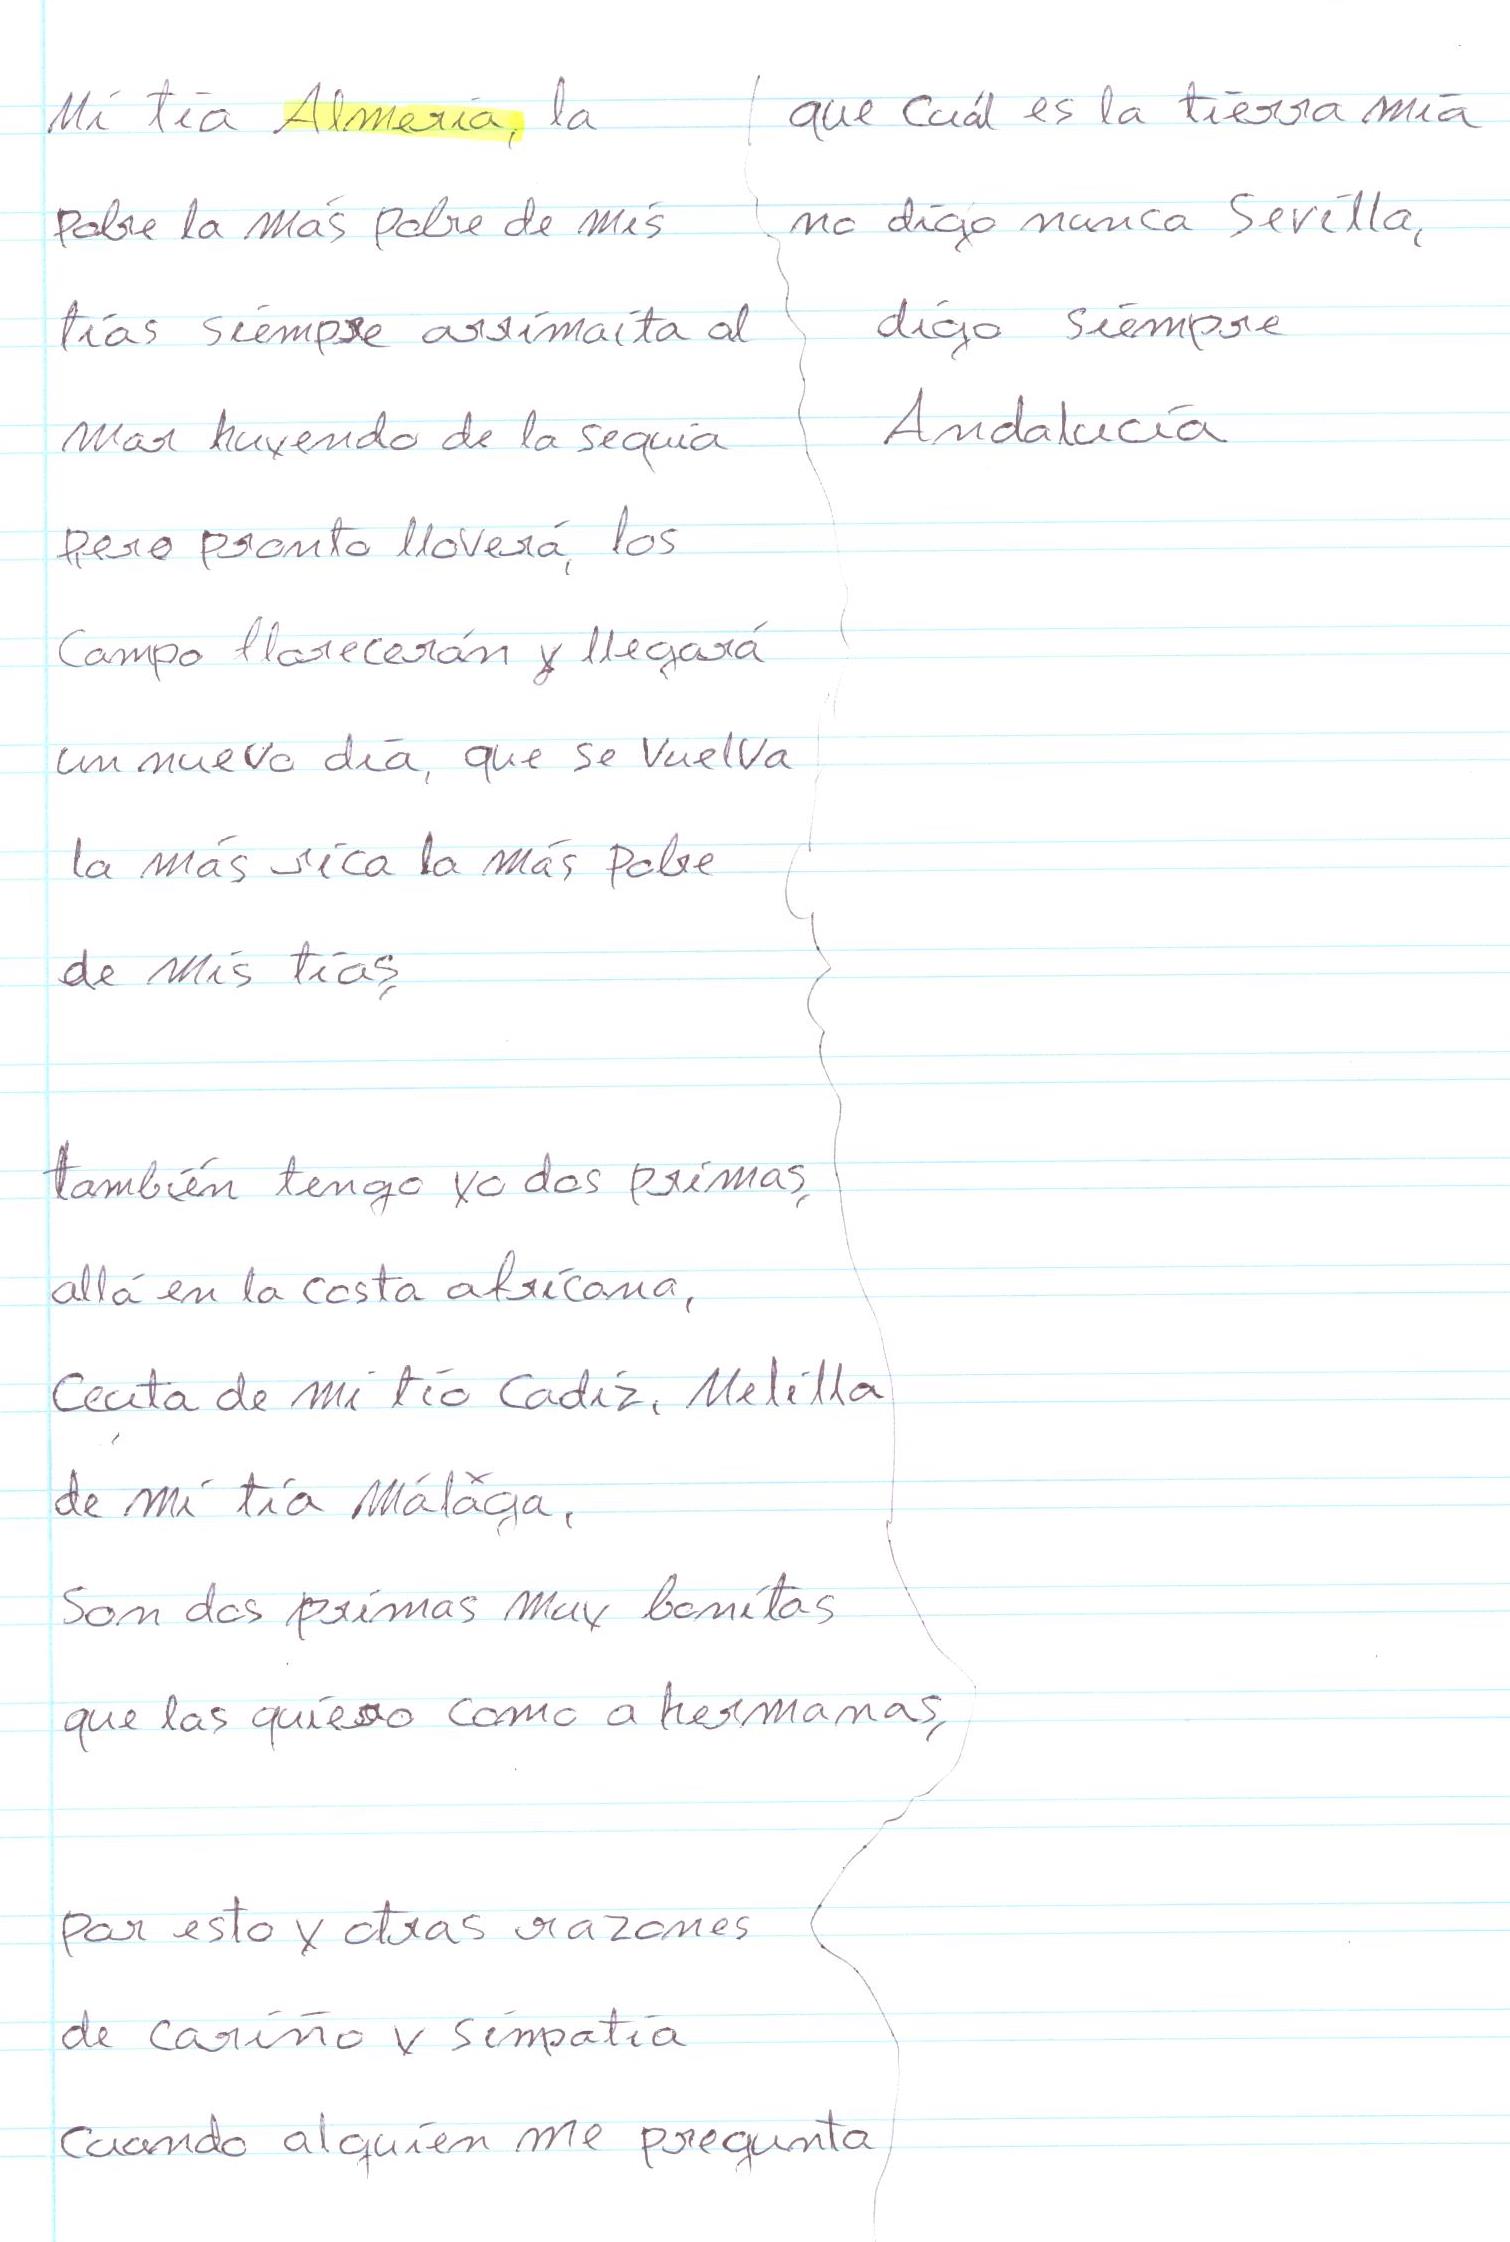 Mi tía Almería, la
pobre la más pobre de mis
tías siempre arrimaíta al
mar huyendo de la sequía
pero pronto lloverá, los
campo florecerán y llegará
un nuevo día, que se vuelva
la más rica la más pobre
de mis tías,
también tengo yo dos primas,
allá en la costa africana,
Ceuta de mi tío Cadiz, Melilla
de mi tía Málaga,
Son dos primas muy bonitas
que las quiero como a hermanas,
por esto y otras razones
de cariño y simpatía
Cuando alguien me pregunta
que cuál es la tierra mía
no digo nunca Sevilla,
digo siempre
Andalucía